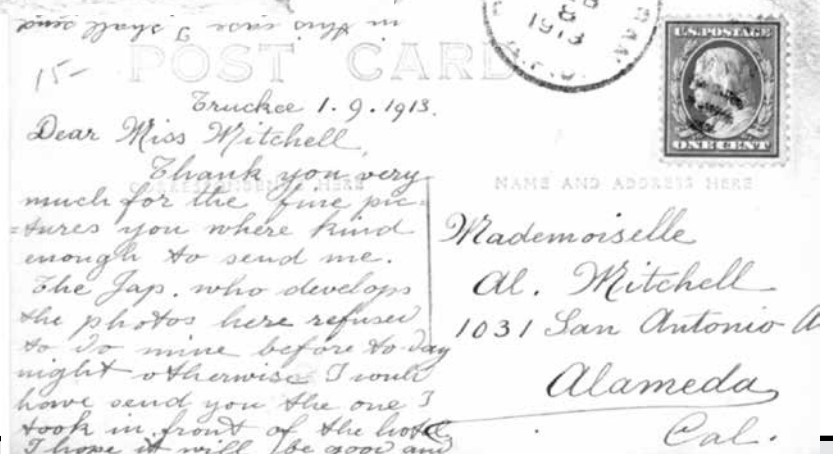 in this case I shall send
POST CARD
15-
8
1913
U.S. POSTAGE
ONE CENT
Truckee 1.9.1913.
Dear Miss Mitchell,
Thank you very
CORRESPONDENCE HERE
much for the fine pic=
=tures you where kind
enough to send me.
The Jap. who develops
the photos here refused
to do mine before to-day
night otherwise I would
have send you the one I
took in front of the hotel
I hope it will be good and
NAME AND ADDRESS HERE
Mademoiselle
Al. Mitchell
1031 San Antonio A
Alameda
Cal.